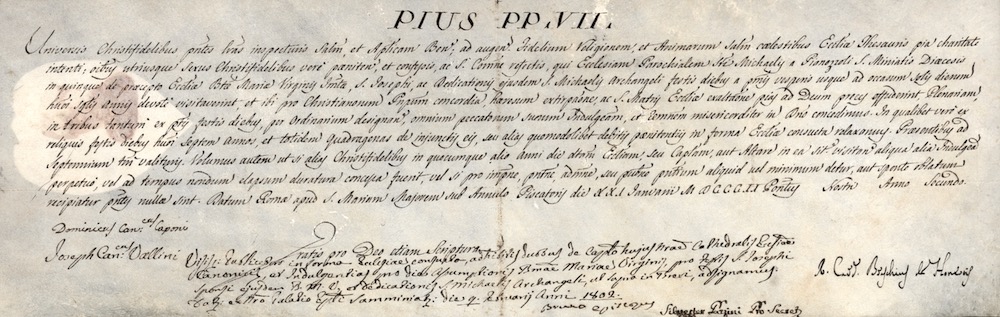 PIUS PP. VII.
Universis Christifidelibus pntes lras inspecturis Salm, et Aplicam Benem, ad augen. Fidelium Religionem, et Animarum Salm coelestibus Ecclie Thesauris pia charitate
intenti, oibus utriusque Sexus Christifidelibus vere poeniten, et confessis, ac S. Comne refectis, qui Ecclesiam Parochialem Sti Michaelis a S. Miniatis Diaecesis
in quinque de praecepto Ecclie Btae Mariae Virginis Smla S. Josephi, ac Dedicationis ejusdem S. Michaelis Archangeli festis diebus a primis vesperis usque ad occasum Solis dierum
huoi Sglis Annis devote visitaverint, et ibi pro Christianorum Ppium concordia, haeresum extirpatione, ac S. Matris Ecclie exaltatione pias ad Deum preces effuderint Plenariam,
in tribus tantum ex ptis festis diebus, per Ordinarium designan, omnium peccatorum Suorum Indulgen, et remissm misericorditer in Dno concedimus. In qualibet vero ex
reliquis festis diebus huoi Septem annos et totidem Quadragenas de injunctis eis, seu alias quomodolibet debitis paenitentiis in forma Ecclie consueta relaxamus. Praesentibus ad
Septennium tm valituris. Volumus autem ut si alias Christifidelibus in quocumque alio anni die dtam Ecliam, seu Caplam, aut Altare in ea sit visitan aliqua alia Indulgen
perpetuo, vel ad tempus nondum elapsum duratura concessa fuerit, vel si pro impne, pntne, admne, seu pubne pntrum aliquid vel minimum detur, aut sponte oblatum
recipiatur pntes nullae sint. Datum Romae apud S. Mariam Majorem sub Annulo Piscatoris die XXI Januarii MDCCCII Pontus Nostri Anno Secundo.
Dominicus Cancus Caponi
Joseph Cancus Vallini
Gratis pro Deo etiam Scriptura
Visis in forma Ecclesiae consueta, de Capto hujus Nrae Cathedralis Ecclae
Canonicis, et Indulgentias pro die Assumptionis Bmae Mariae Virginis, pro festis S. Josephi
Sponsi ejusdem B. M. V. et Dedicationis S. Michaelis Archangeli, ut supra in trevi, assignamus.
Dat. ex Nro Palatio Epali Samminiati die 9 Anni 1802.
Bruno episcopus
Silvester Pierini Pro-Secret.
R. Card. Braschius de Honestis